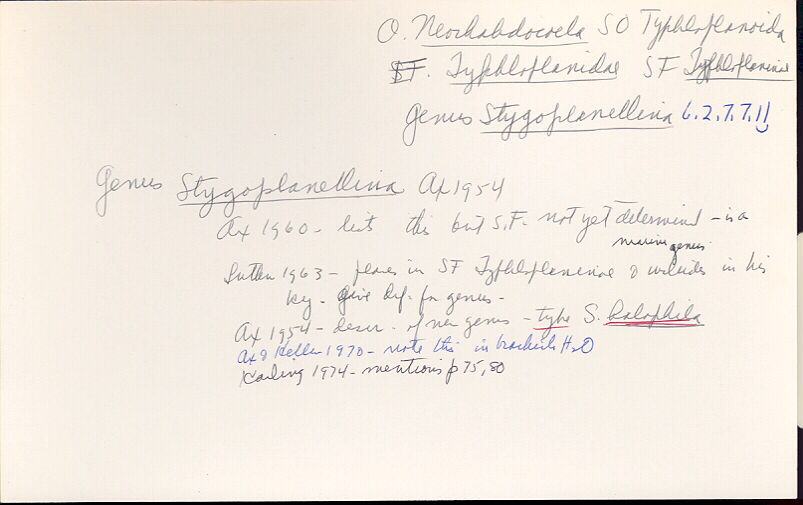 O. Neorhabdocoela SO Typhloplanoida
F. Typhloplanidae SF Typhloplaninae
Genus Stygoplanellina 6.2.7.7.11
Genus Stygoplanellina Ax 1954
Ax 1960 - lists this but S.F. not yet determined - is a
marine genus.
Luther 1963 - places in SF Typhloplaninae & includes in his
key. Gives def. for genus -
Ax 1954 - descr. of new genus - type S. halophila
Ax & Heller 1970 - note this in brackish H2O
Karling 1974 - mentions p 75, 80